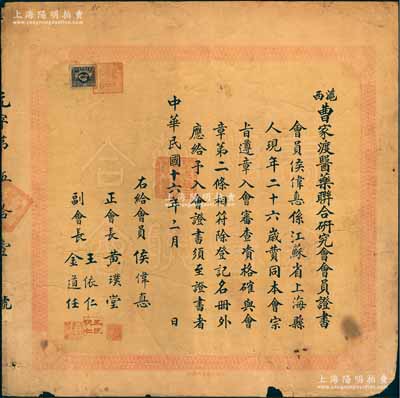 上海陽明拍賣
www.yangmingauction.com
滬西曹家渡醫藥聯合研究會會員證書
會員侯偉惪係江蘇省上海縣
人現年二十六歲贊同本會宗
旨遵章入會審查資格確與會
章第二條相符除登記名冊外
應給予入會證書須至證書者
右給會員 侯偉惪
正會長 黃璞堂
副會長 王依仁
金道任
中華民國十六年二月 日
元字第伍拾壹號
上海陽明拍賣